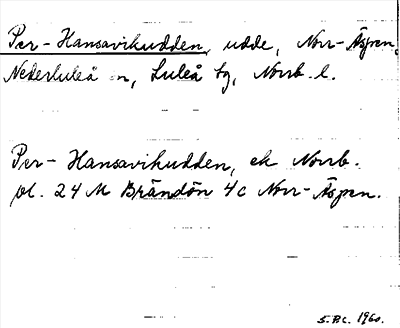 Per-Hansavikudden, udde, Norr-Äspen,
Nederluleå sn, Luleå tg, Norrb. l.
Per-Hansavikudden, ek Norrb.
bl. 24 M Brändön 4c Norr-Äspen.
1960.